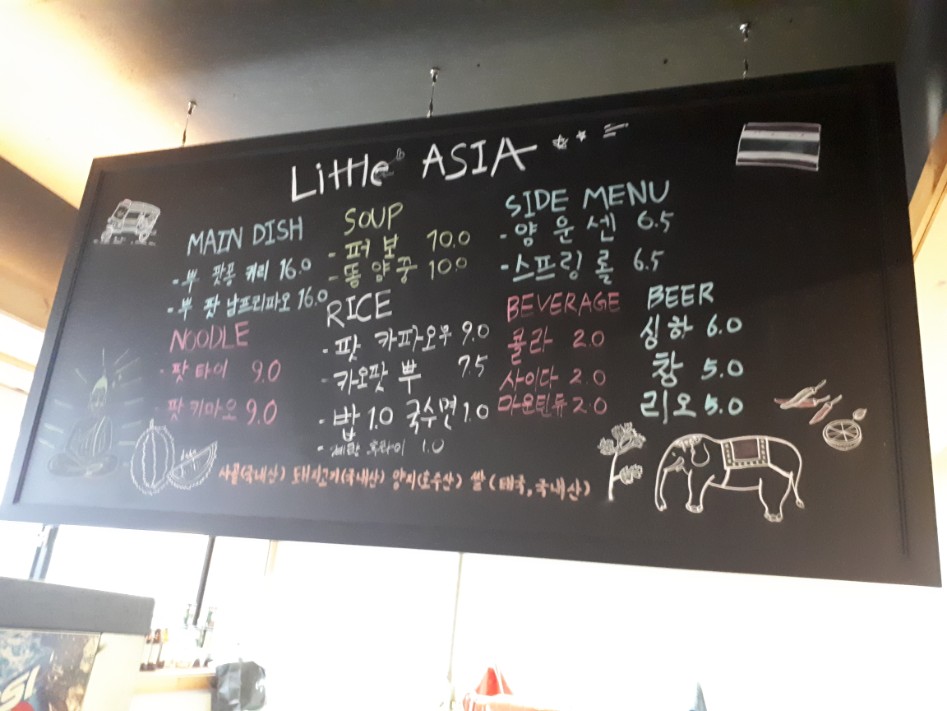 Little ASIA
MAIN DISH
-뿌 팟퐁 커리 16.0
- 뿌 팟 남프리파오 16.0
NOODLE
- 팟타이 9.0
- 팟키마오 9.0
SOUP
- 퍼 보 10.0
- 똥 얌 꿍 10.0
RICE
- 팟 카파오무 9.0
- 카오팟 뿌 7.5
- 밥 1.0 국수면 1.0
- 계란 후라이 1.0
SIDE MENU
- 얌 운 센 6.5
- 스프링 롤 6.5
BEVERAGE
콜라 2.0
사이다 2.0
마운틴듀 2.0
BEER
싱하 6.0
창 5.0
리오 5.0
사골(국내산) 돼지고기(국내산) 양지(호주산) 쌀(태국,국내산)